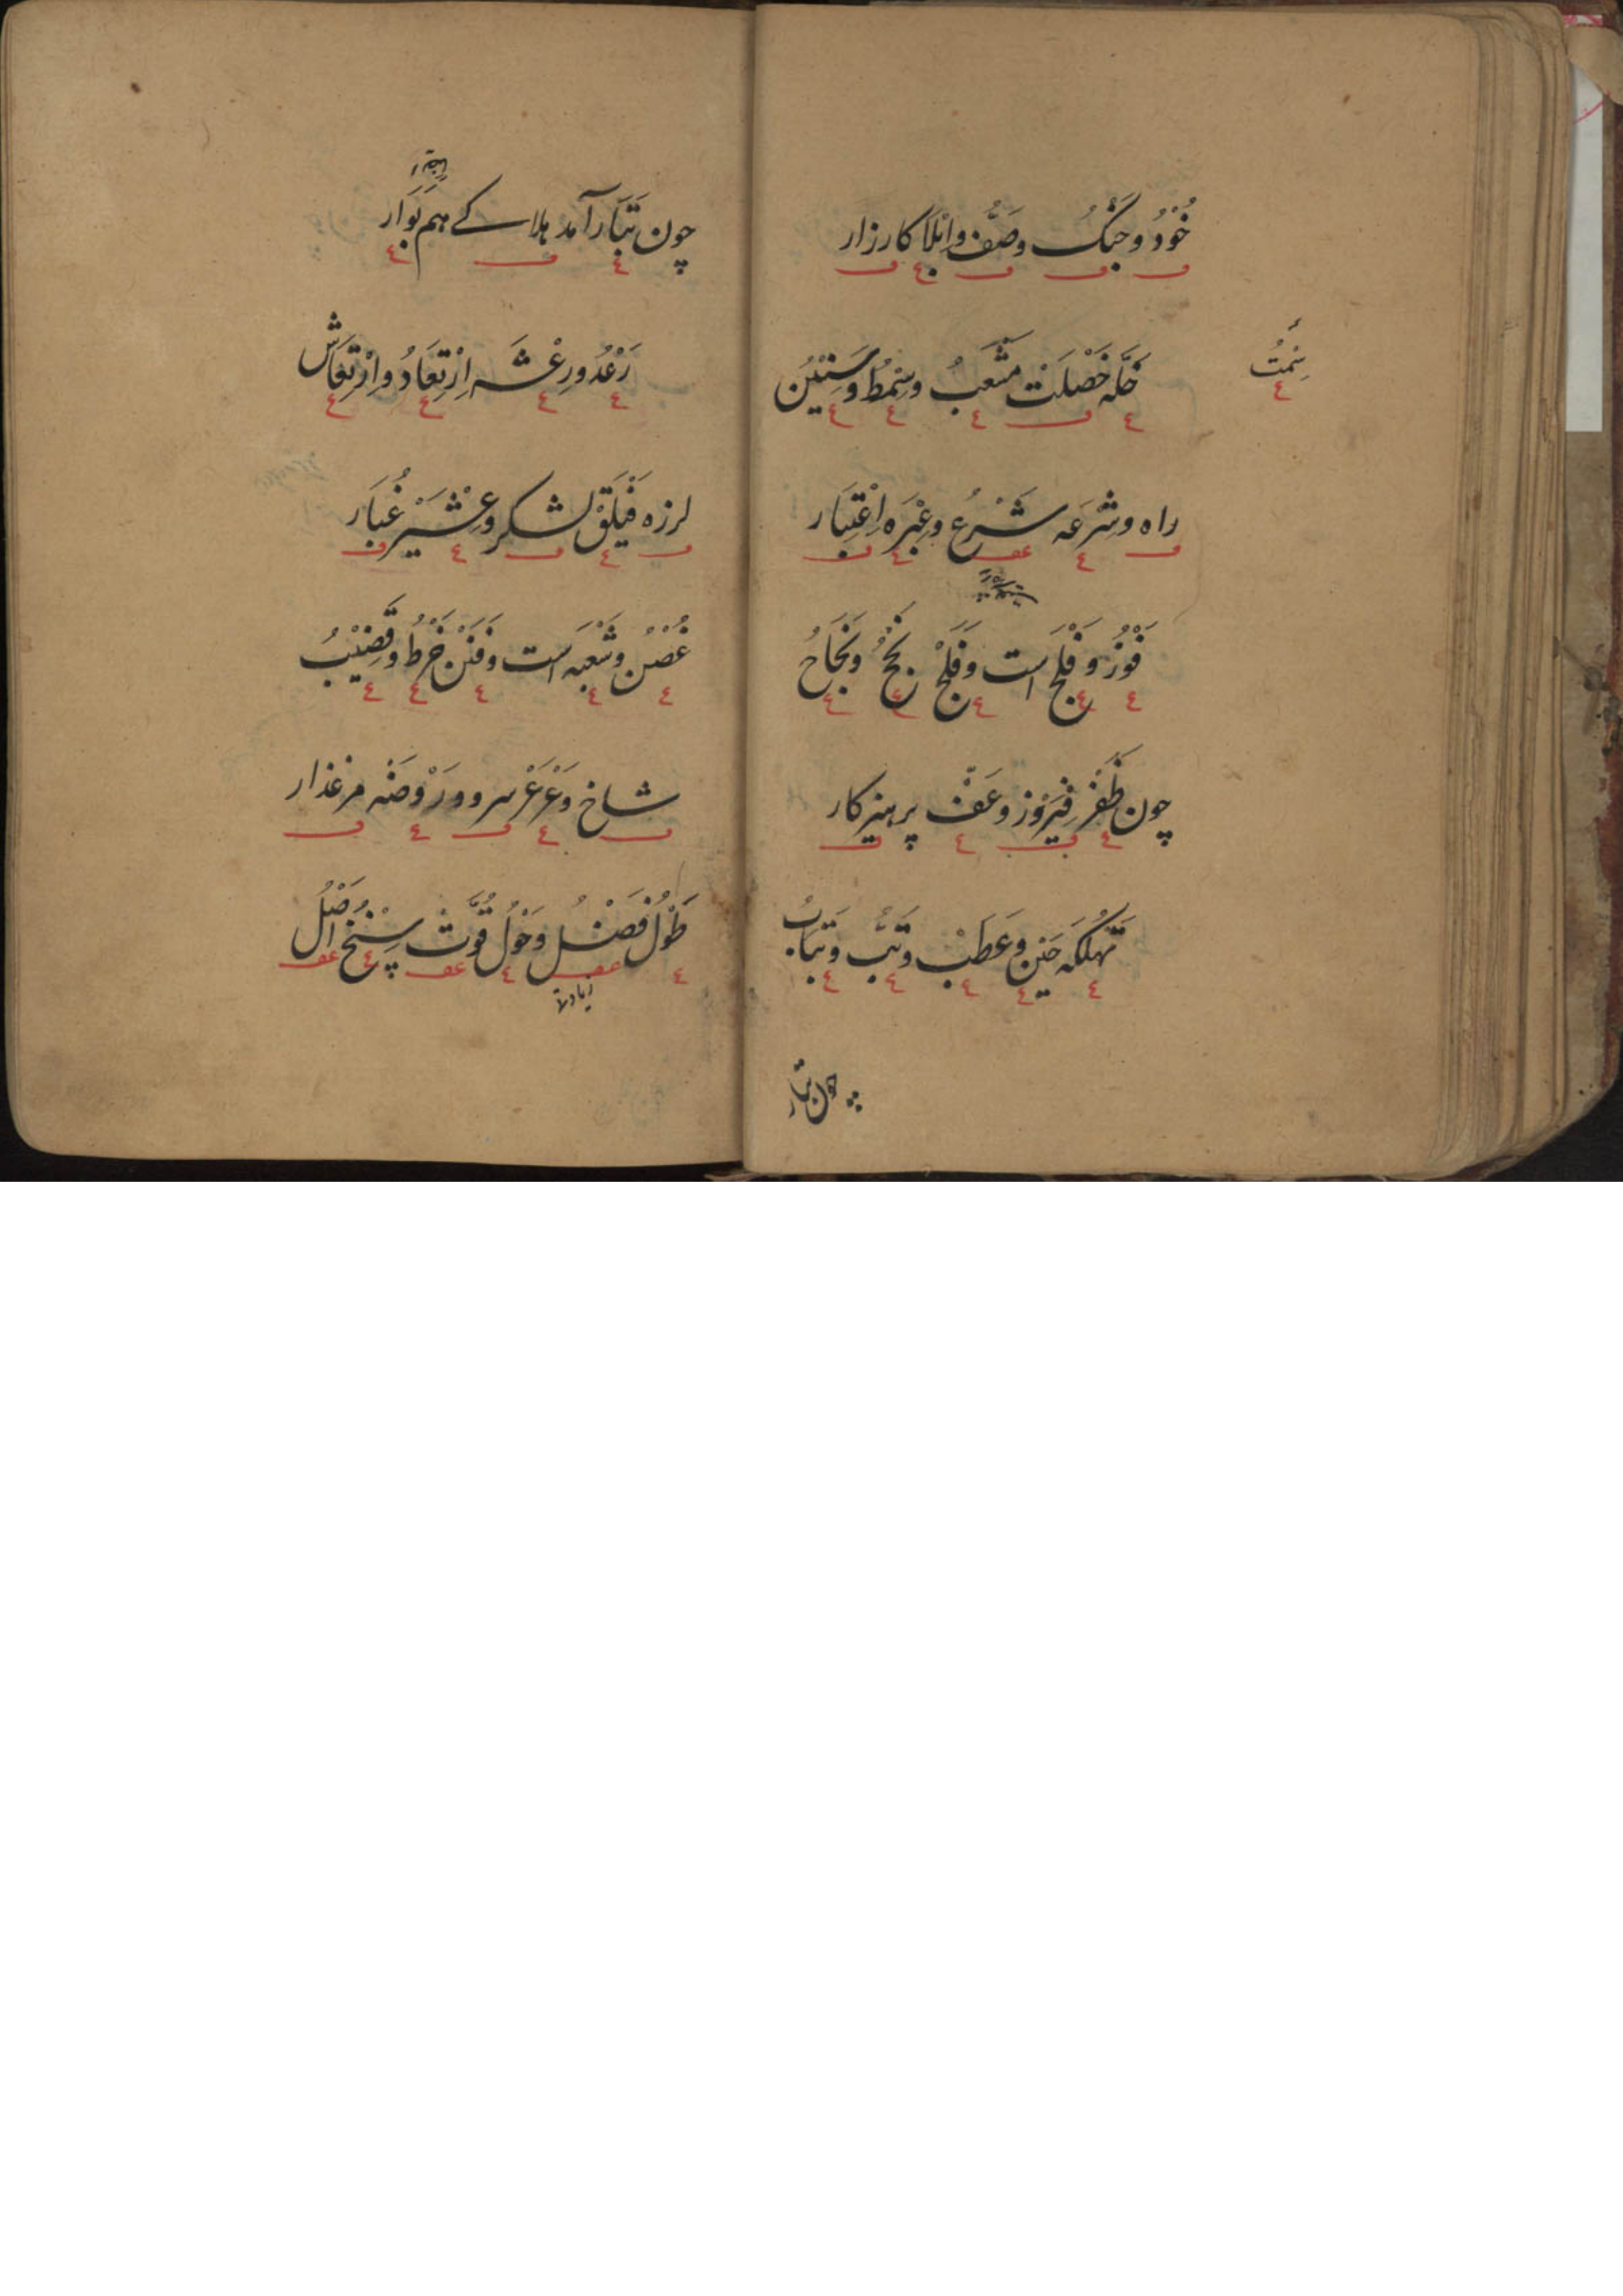 خُوْدُ وجَنْكُ وصَفُّ وابْلَا كارزار
خَلَّه خَصْلَتْ مَشْعَبُ وسِمْطُ وسَنَنْ
سِمْتُ
راه وشِرْعَه شَرْعُ وعِبْرَه اِعْتِبَار
فَوْزُ وفَلْجُ است وفَلَجْ نُجْحُ ونَجَاحُ
چون ظَفَرْ فِيْرَوْز وعَفّ پرهيزكار
تَهْلُكَه حَيْن وعَطَبْ وتَبُّ وتَبَابُ
چون تبار
چون تَبَار آمد هلاكے هم بَوَار
رَعْدُ ورِعْشَه اِرْتِعَادُ واِرْتِعَاش
لرزه فَيْلَقْ لشكر وعِثْيَرْ غُبَار
غُصْنُ وشُعْبَه است وفَنَنْ خُرْطُ وقَضِيْبُ
شاخ وعَرْعَرْ سرو ورَوْضَه مرغذار
طَوْلُ فَضْلُ وحَوْلُ قُوَّتْ سِنْخُ اَصْلُ